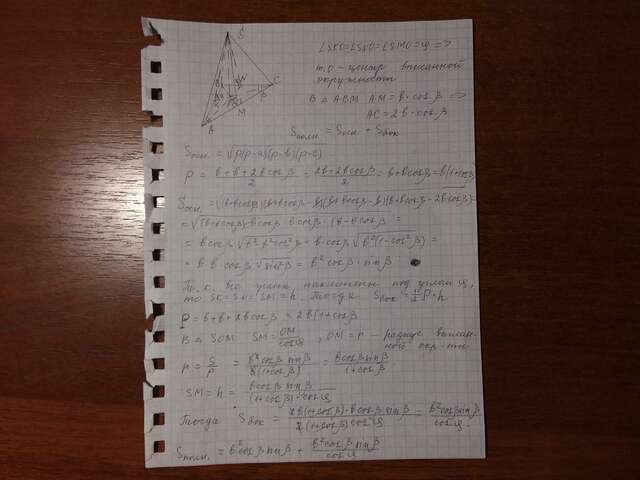 S
∠SKO=∠SNO=∠SMO=φ =>
т.О - центр вписанной
окружности
В △ ABM AM = b·cosβ =>
AC = 2b·cosβ
A
M
C
Sполн. = Sосн. + Sбок
Sосн. = √p(p-a)(p-b)(p-c)
p = b+b+2bcosβ/2 = 2b+2bcosβ/2 = b+bcosβ = b(1+cosβ)
Sосн. = √(b+bcosβ)(b+bcosβ-b)(b+bcosβ-b)(b+bcosβ-2bcosβ) =
= √(b+bcosβ)·bcosβ·bcosβ·(b-bcosβ) =
= bcosβ√b²-b²cos²β = b·cosβ√b²(1-cos²β) =
= b·b·cosβ√sin²β = b²cosβ·sinβ
Т.к. все грани наклонены под углом φ,
то SK=SN=SM=h. Тогда Sбок = 1/2 P·h
P = b+b+2bcosβ = 2b(1+cosβ)
В △ SOM SM = OM/cosφ, OM = r - радиус вписан-
ной окр-ти
r = S/p = b²cosβsinβ/b(1+cosβ) = bcosβsinβ/1+cosβ
SM = h = bcosβsinβ/(1+cosβ)·cosφ
Тогда Sбок = 2b(1+cosβ)·bcosβsinβ/2(1+cosβ)cosφ = b²cosβsinβ/cosφ.
Sполн. = b²cosβsinβ + b²cosβsinβ/cosφ